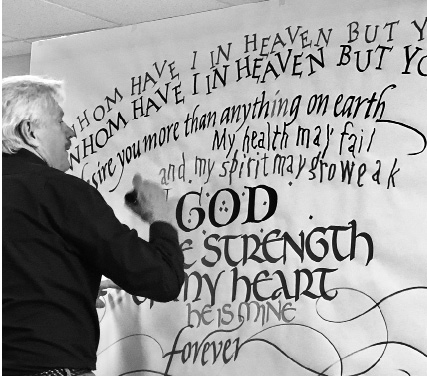 WHOM HAVE I IN HEAVEN BUT Y
WHOM HAVE I IN HEAVEN BUT YO
sire you more than anything on earth
My health may fail
and my spirit may grow weak
GOD
E STRENGTH
OF MY HEART
HE IS MINE
forever